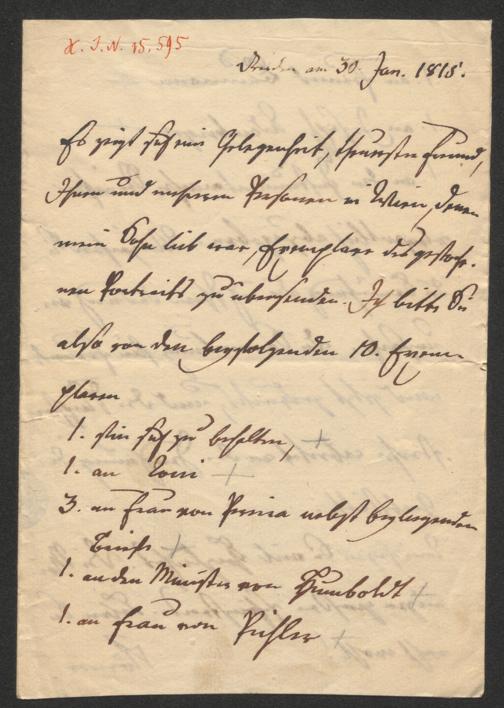 H. I. N. 15,595
Dresden am 30. Jan. 1815.
Es zeigt sich eine Gelegenheit, theuerster Freund,
Ihnen und mehreren Personen in Wien, denen
mein Sohn lieb war, Exemplare des gestoche-
nen Portraits zu übersenden. Ich bitte Sie
also von den beyfolgenden 10. Exem-
plaren
1. für sich zu behalten,
1. an Toni
3. an Frau von Pereira nebst beyliegendem
Briefe
1. an den Minister von Humboldt
1. an Frau von Pichler